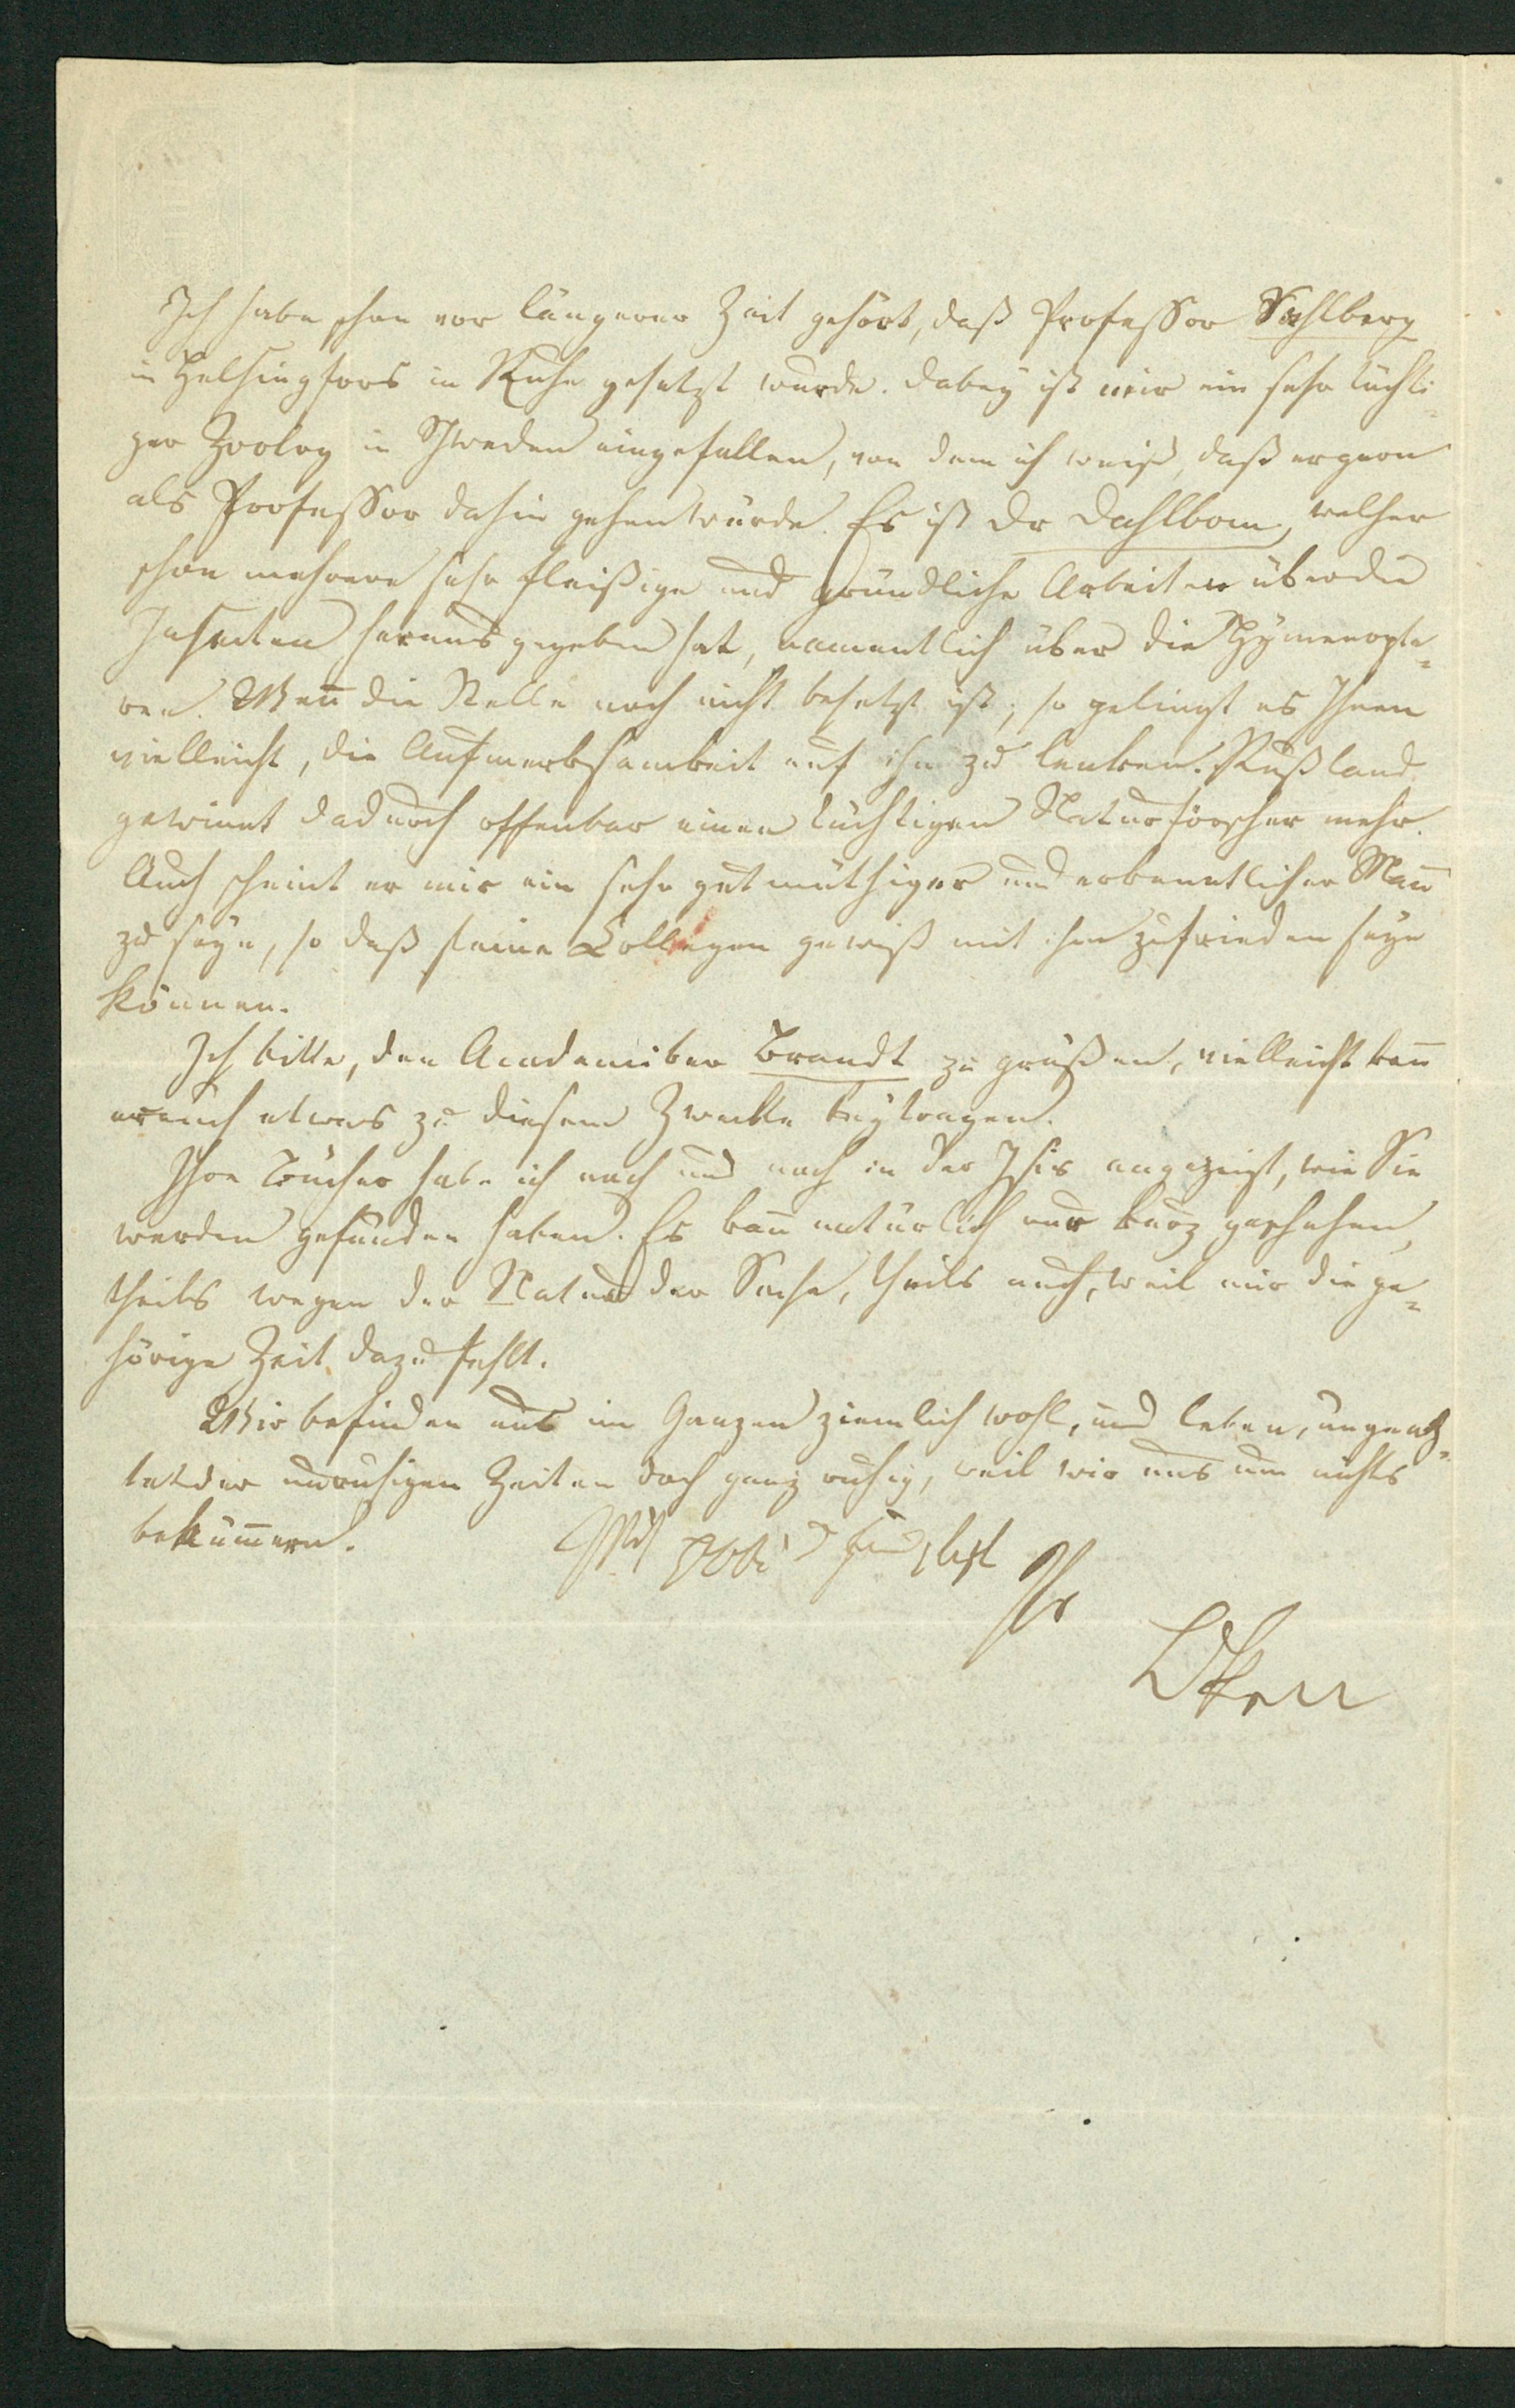 Ich habe schon vor längerer Zeit gehört, daß Professor Sahlberg
in Helsingfors in Ruhe gesetzt wurde. Dabey ist mir ein sehr tüchti-
ger Zoolog in Schweden eingefallen, von dem ich weiß, daß er gern
als Professor dahin gehen würde. Es ist Dr Dahlbom, welcher
schon mehrere sehr fleißige und gründliche Arbeiten über die
Insecten herausgegeben hat, namentlich über die Hymenopte-
ren. Wen̄ die Stelle noch nicht besetzt ist, so gelingt es Ihnen
vielleicht, die Aufmerksamkeit auf ihn zu lenken. Rußland
gewinnt dadurch offenbar einen tüchtigen Naturforscher mehr.
Auch scheint er mir ein sehr gutmüthiger und erkenntlicher Man̄
zu seyn, so daß seine Collegen gewiß mit ihm zufrieden seyn
können.
Ich bitte, den Academiker Brandt zu grüßen, vielleicht kan̄
er auch etwas zu diesem Zwecke beytragen.
Ihre Bücher habe ich nach und nach in der Isis angezeigt, wie Sie
werden gefunden haben. Es kan̄ natürlich nur kurz geschehen,
theils wegen der Natur der Sache, theils auch, weil mir die ge-
hörige Zeit dazu fehlt.
Wir befinden uns im Ganzen ziemlich wohl, und leben, ungeach-
tet der unruhigen Zeiten doch ganz ruhig, weil wir uns um nichts
bekümmern.
Ihr
Oken